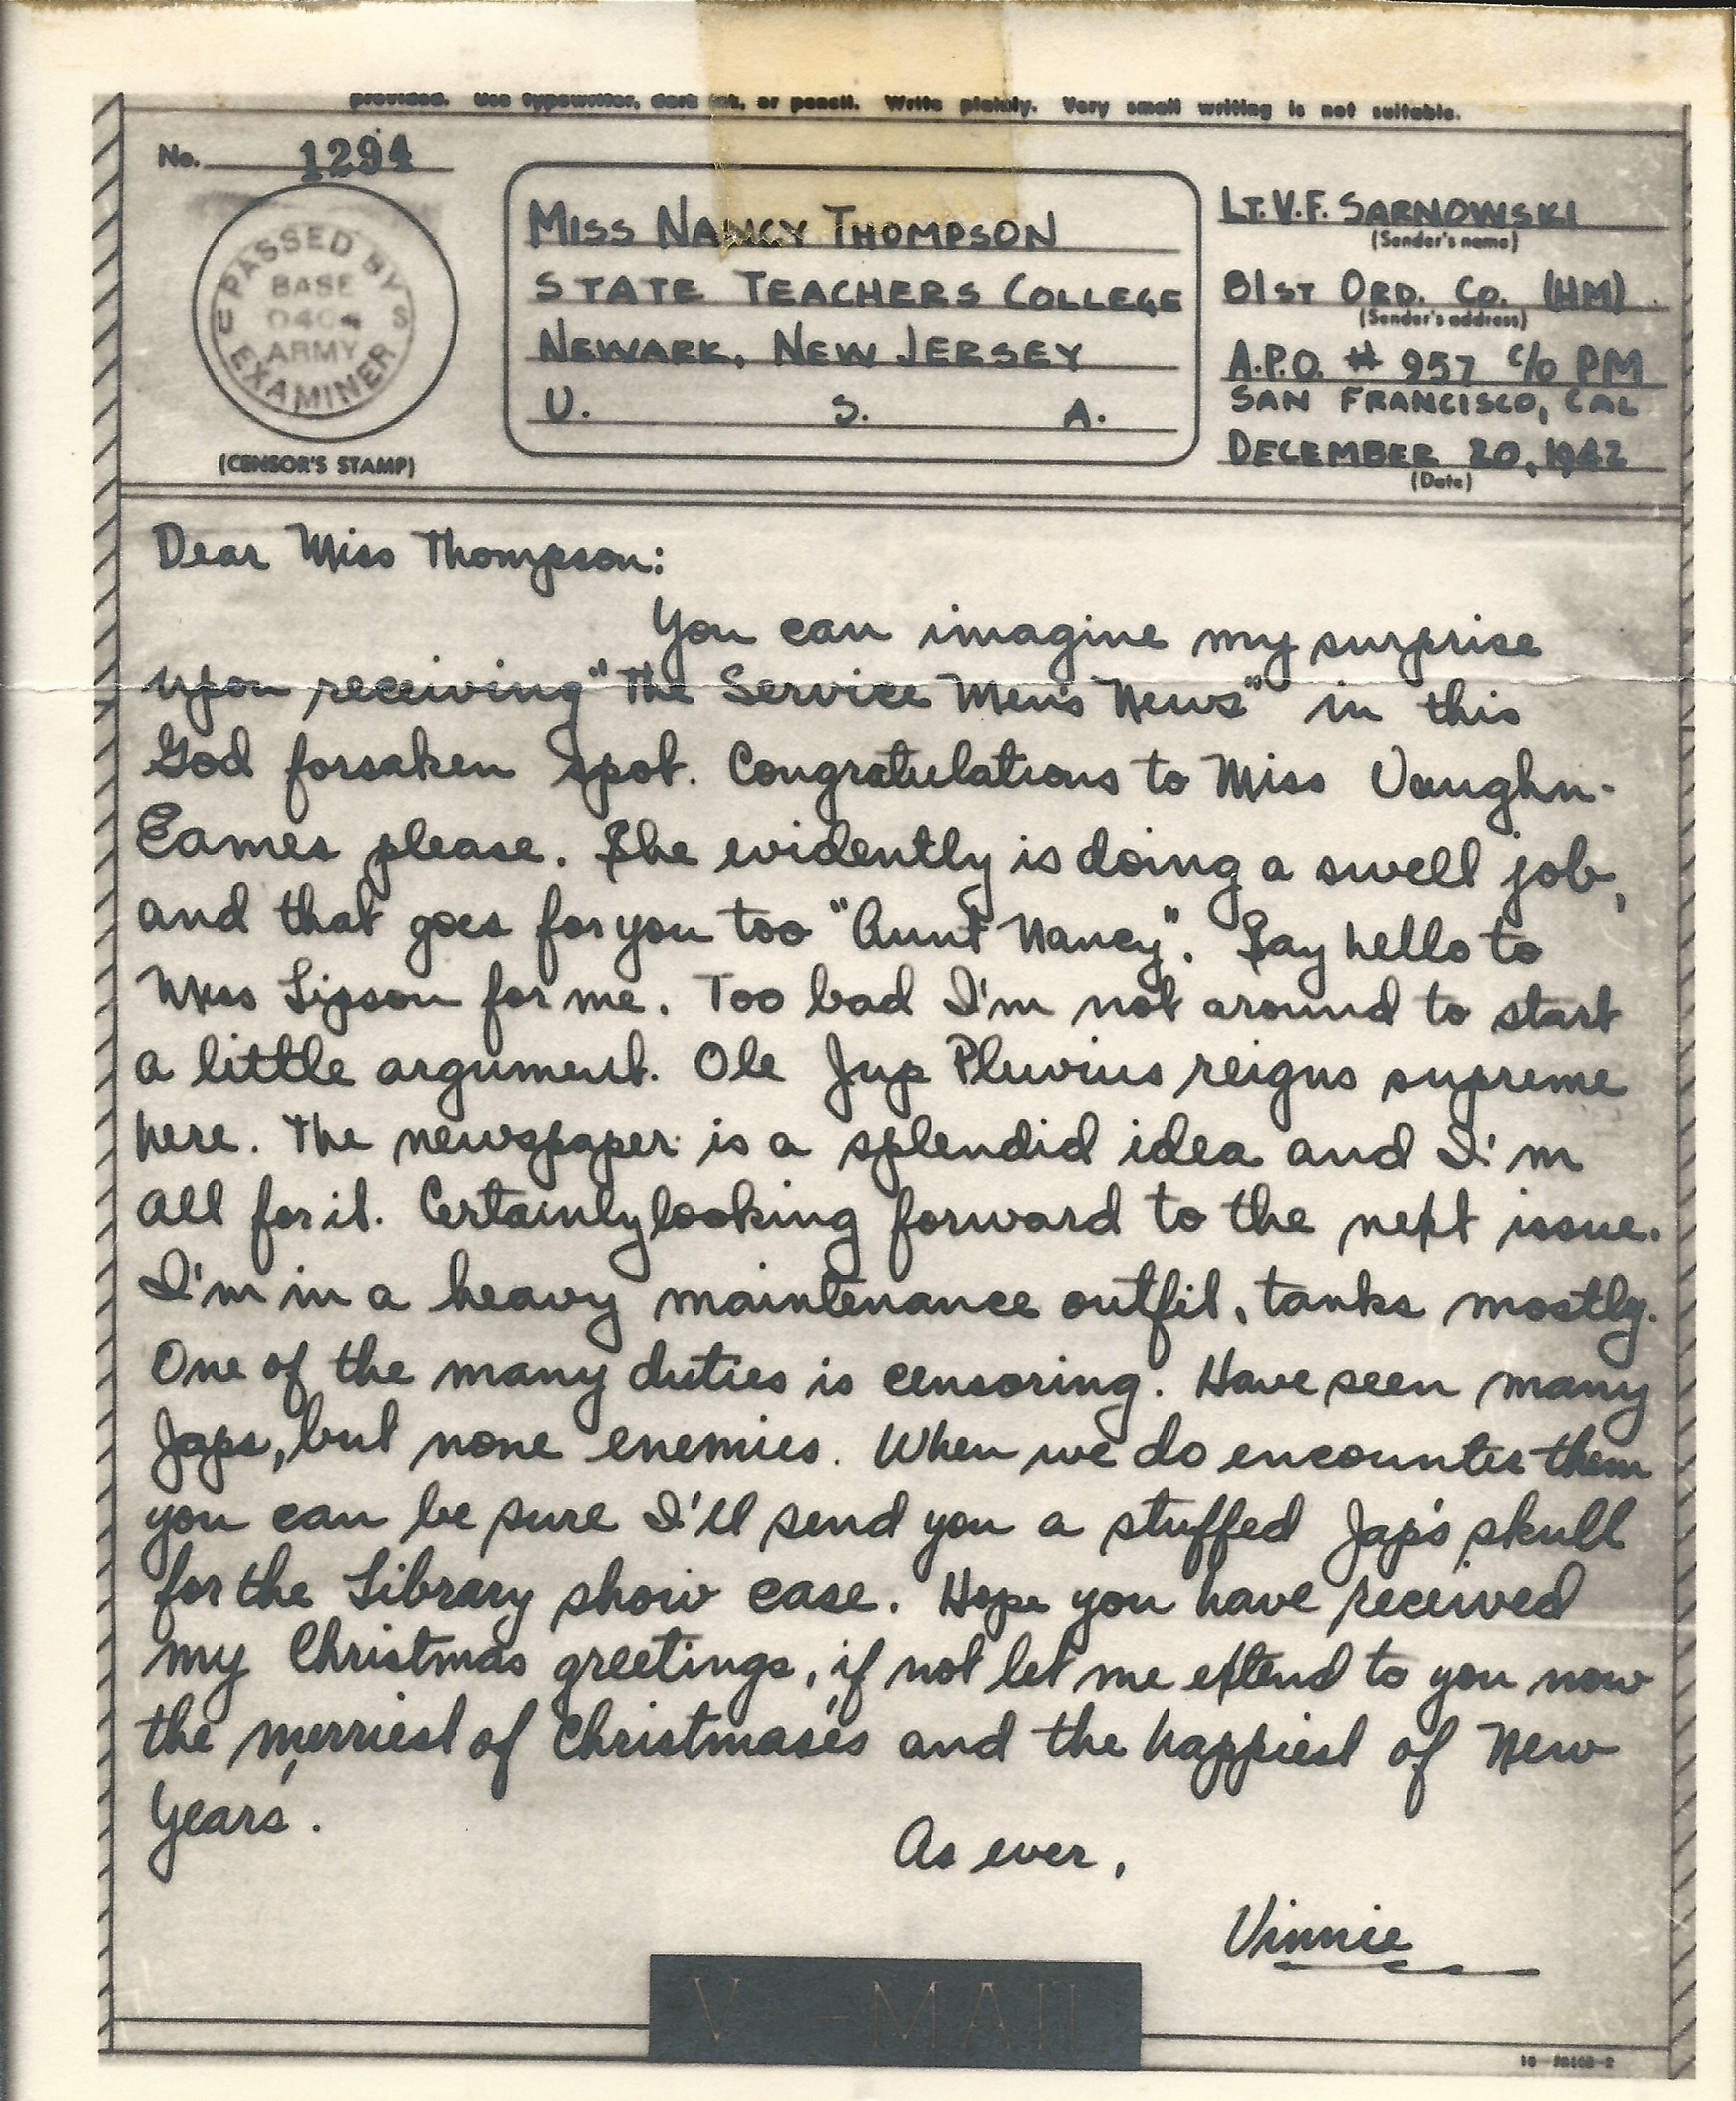 provided. Use typewriter, dark ink, or pencil. Write plainly. Very small writing is not suitable.
No. 1294
PASSED BY
BASE
0404
U S
ARMY
EXAMINER
(CENSOR'S STAMP)
MISS NANCY THOMPSON
STATE TEACHERS COLLEGE
NEWARK, NEW JERSEY
U. S. A.
LT. V.F. SARNOWSKI
(Sender's name)
81ST ORD. CO. (HM)
(Sender's address)
A.P.O. # 957 c/o PM
SAN FRANCISCO, CAL
DECEMBER 20, 1942
(Date)
Dear Miss Thompson:
You can imagine my surprise
upon receiving "The Service Men's News" in this
God forsaken spot. Congratulations to Miss Vaughn-
Eames please. She evidently is doing a swell job,
and that goes for you too "Aunt Nancy". Say hello to
Miss Lipson for me. Too bad I'm not around to start
a little argument. Ole Jup Pluvius reigns supreme
here. The newspaper is a splendid idea and I'm
all for it. Certainly looking forward to the next issue.
I'm in a heavy maintenance outfit, tanks mostly.
One of the many duties is censoring. Have seen many
Japs, but none enemies. When we do encounter them
you can be sure I'll send you a stuffed Jap's skull
for the Library show case. Hope you have received
my Christmas greetings, if not let me extend to you now
the merriest of Christmases and the happiest of New
Years.
As ever,
Vinnie
V-MAIL